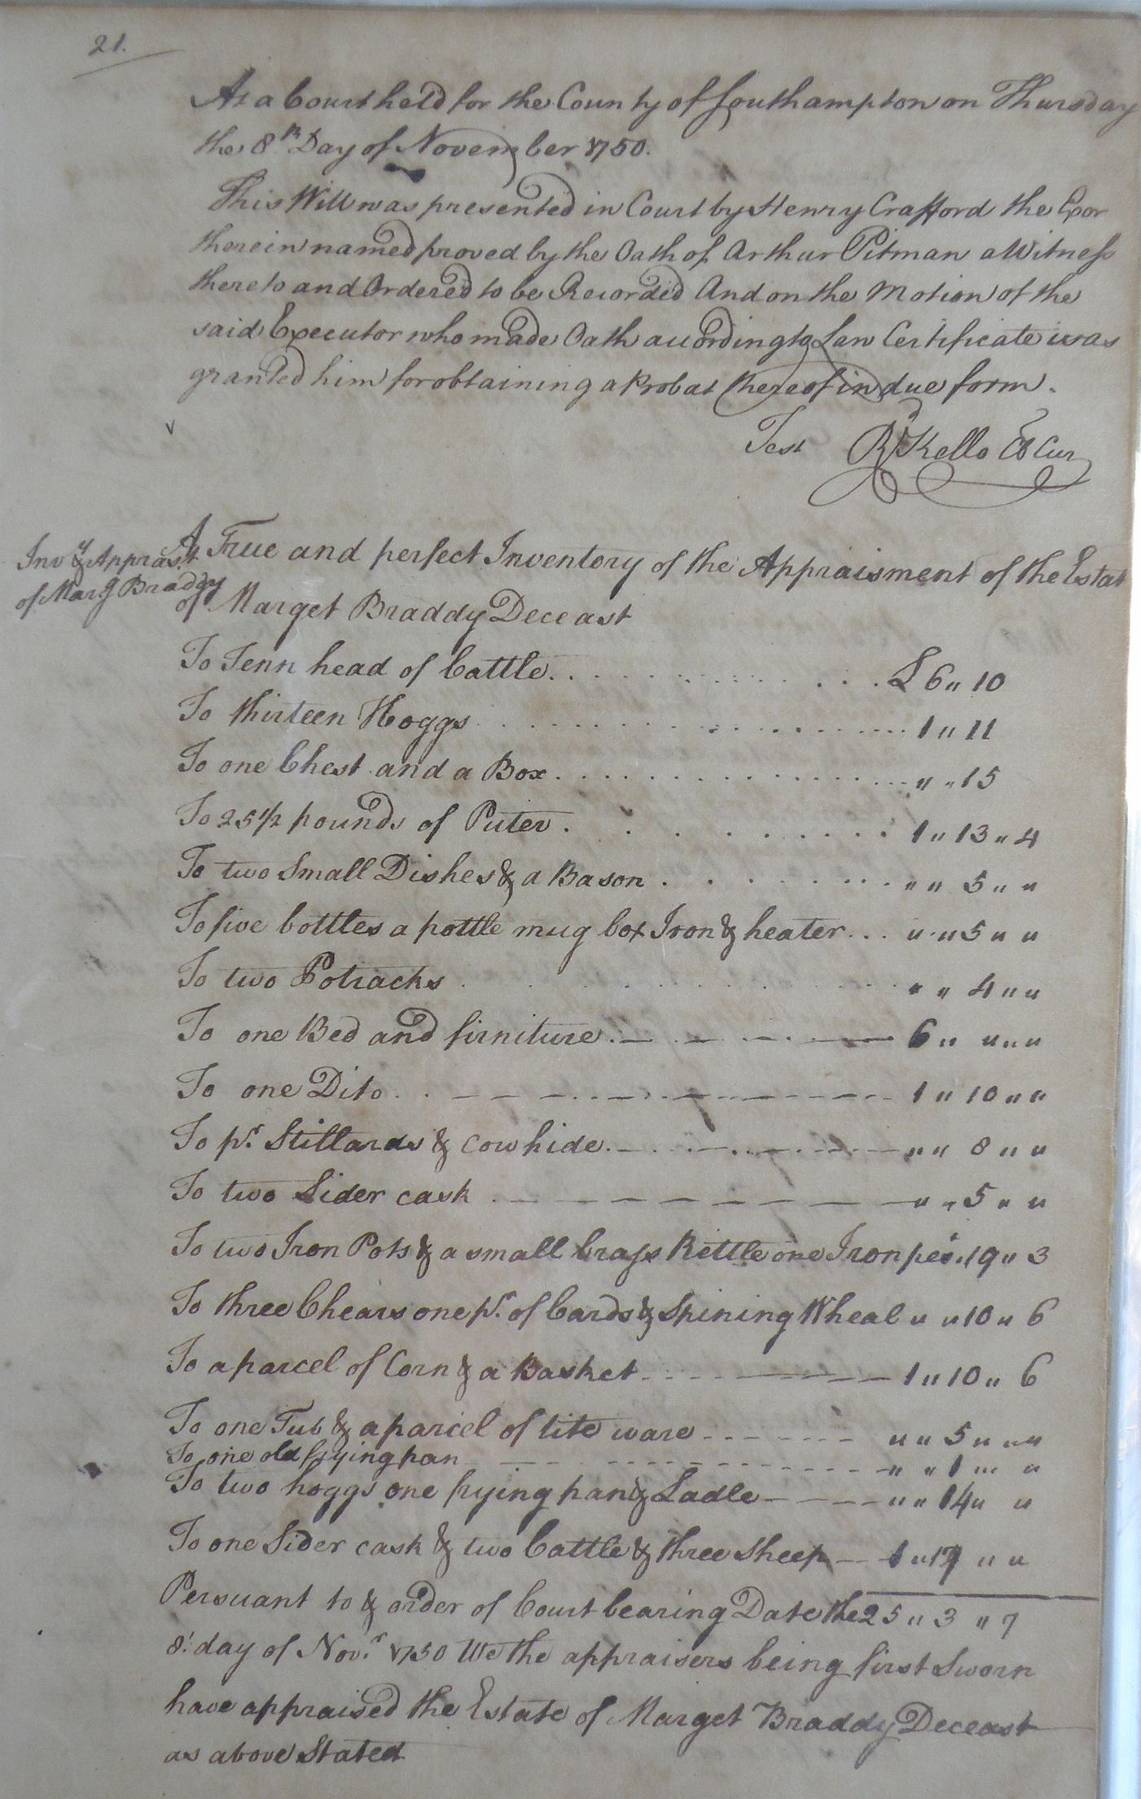 21.
At a Court held for the County of Southampton on Thursday
the 8th Day of November 1750.
This Will was presented in Court by Henry Crafford the Exor
therein named proved by the Oath of Arthur Pitman a Witness
thereto and Ordered to be Recorded And on the Motion of the
said Executor who made Oath according to Law Certificate was
granted him for obtaining a Probat thereof in due form.
Test Rd Kello Cl Cur
Invy & Apprast
of Marg Braddy
A True and perfect Inventory of the Appraisment of the Estat
of Marget Braddy Deceast
To Tenn head of Cattle . . . £ 6 " 10
To thirteen Hoggs . . . 1 " 11
To one Chest and a Box . . . " " 15
To 25 1/2 pounds of Puter . . . 1 " 13 " 4
To two Small Dishes & a Bason . . . " " 5 " "
To five bottles a pottle mug box Iron & heater . . . " " 5 " "
To two Potracks . . . " " 4 " "
To one Bed and firniture . . . 6 " " " "
To one Dito . . . 1 " 10 " "
To pr. Stillards & cowhide . . . " " 8 " "
To two Sider cask . . . " " 5 " "
To two Iron Pots & a small brass Kettle one Iron " 19 " 3
To three Chears one pr. of Cards & Spining Wheal " " 10 " 6
To a parcel of Corn & a Basket . . . 1 " 10 " 6
To one Tub & a parcel of tite ware . . . " " 5 " " "
To one old frying pan . . . " " 1 " "
To two hoggs one frying pan & Ladle . . . " " 14 " "
To one Sider cask & two Cattle & three sheep — 1 " 17 " "
Persuant to & order of Court bearing Date the 25 " 3 " 7
8t day of Novr. 1750 We the appraisers being first Sworn
have appraised the Estate of Marget Braddy Deceast
as above Stated